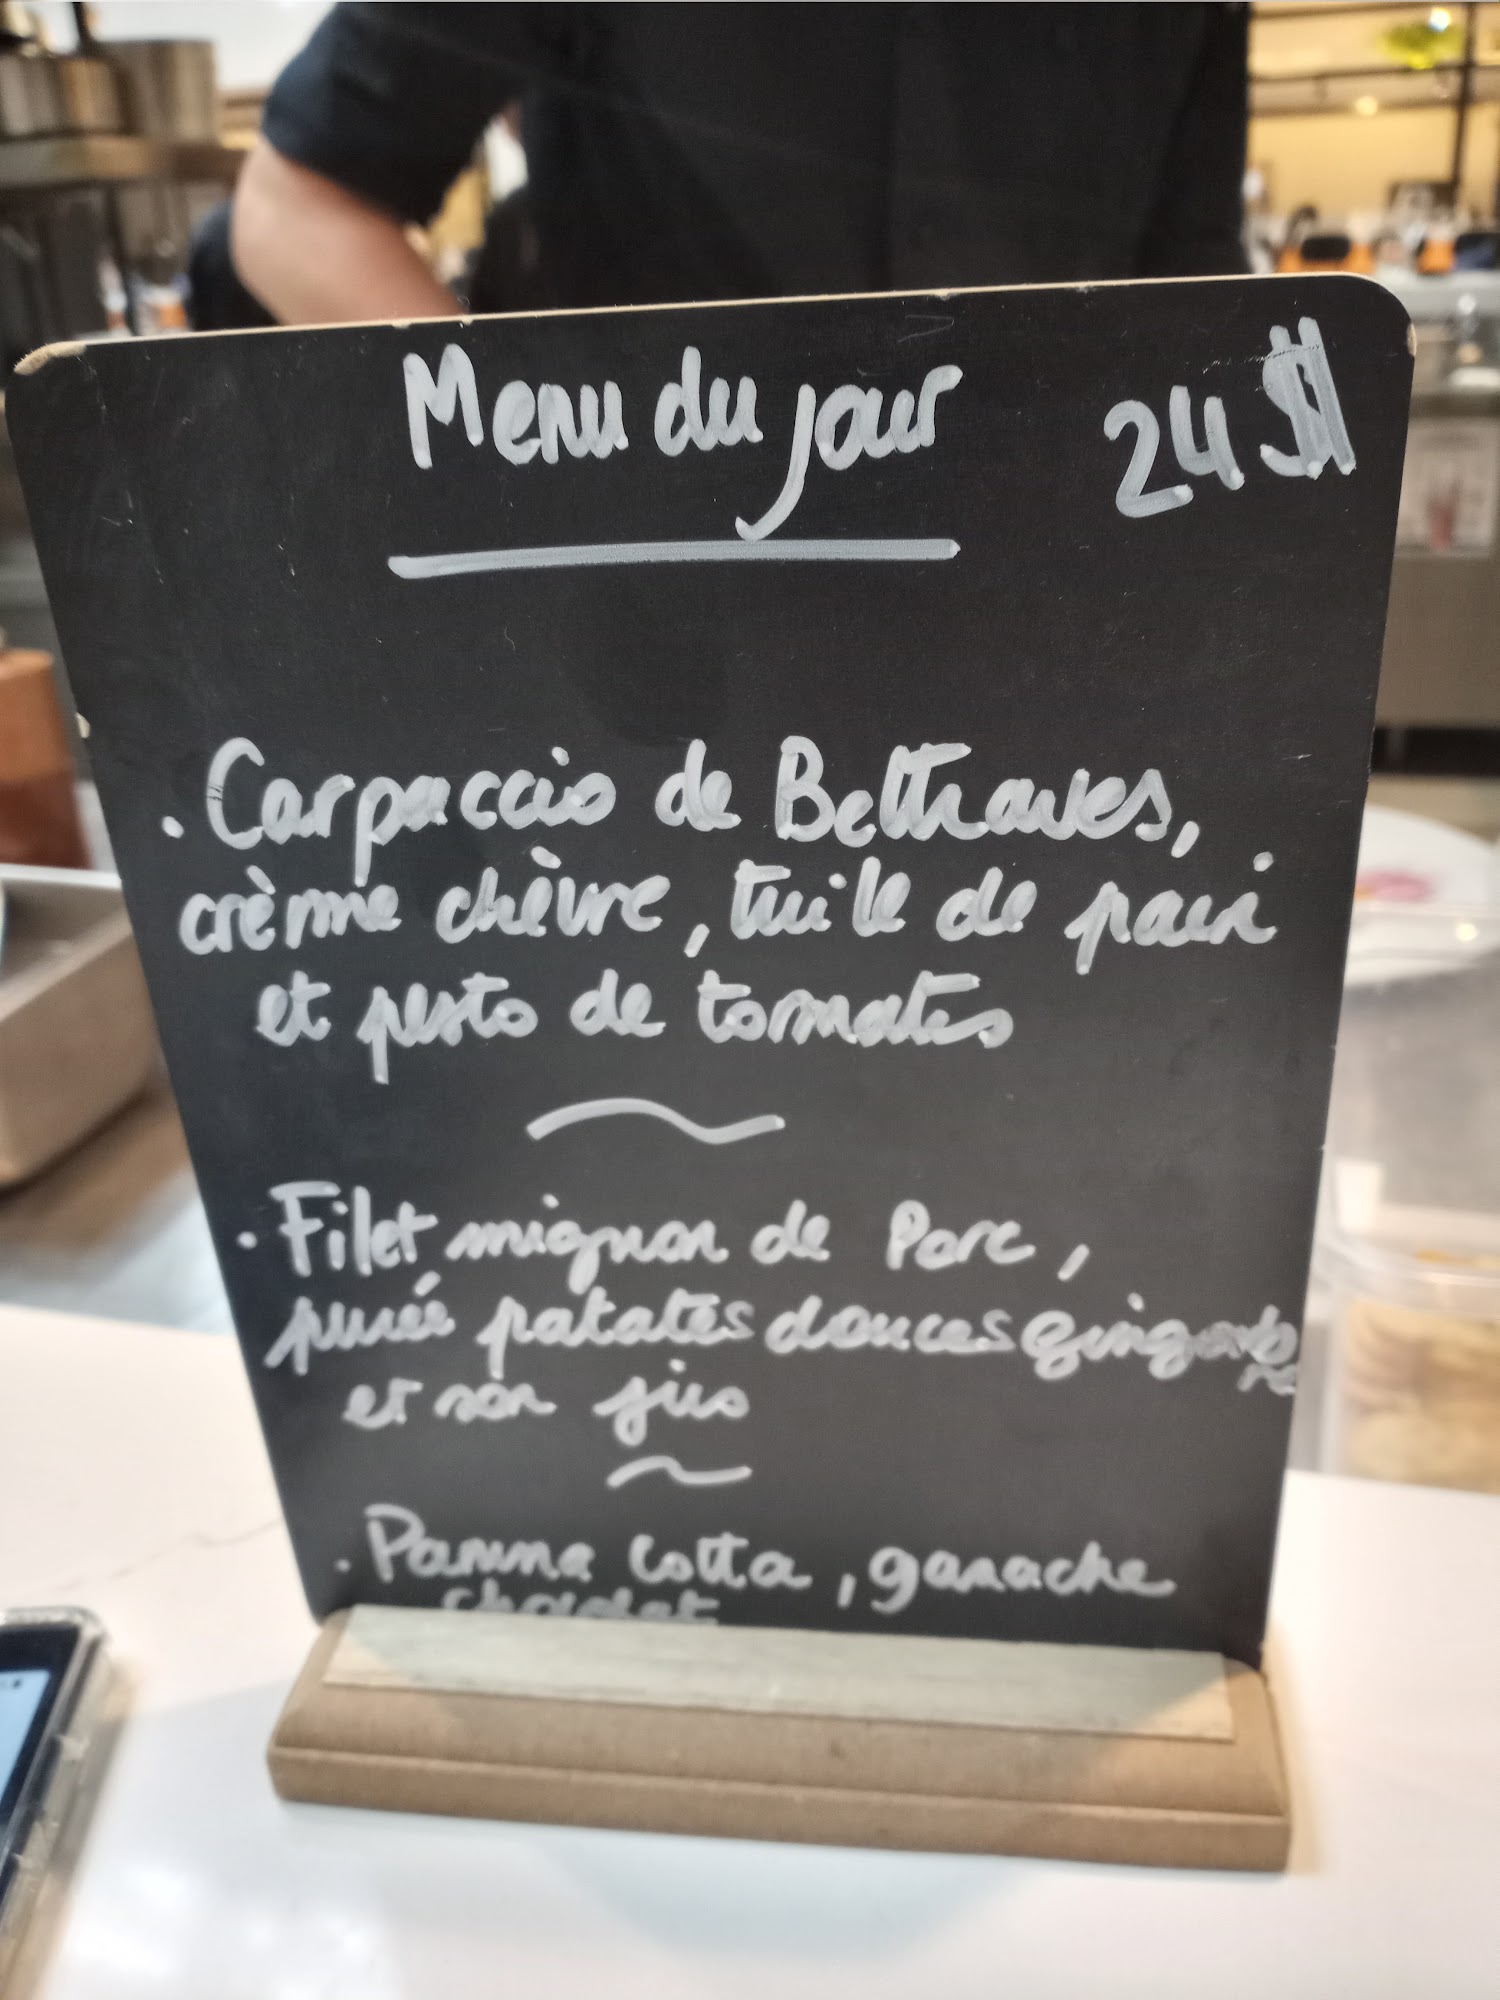 Menu du jour 24 $
. Carpaccio de Bettraves,
crème chèvre, tuile de pain
et pesto de tomates
. Filet mignon de Porc,
purée patates douces gingembre
et son jus
. Panna cotta, ganache
chocolat